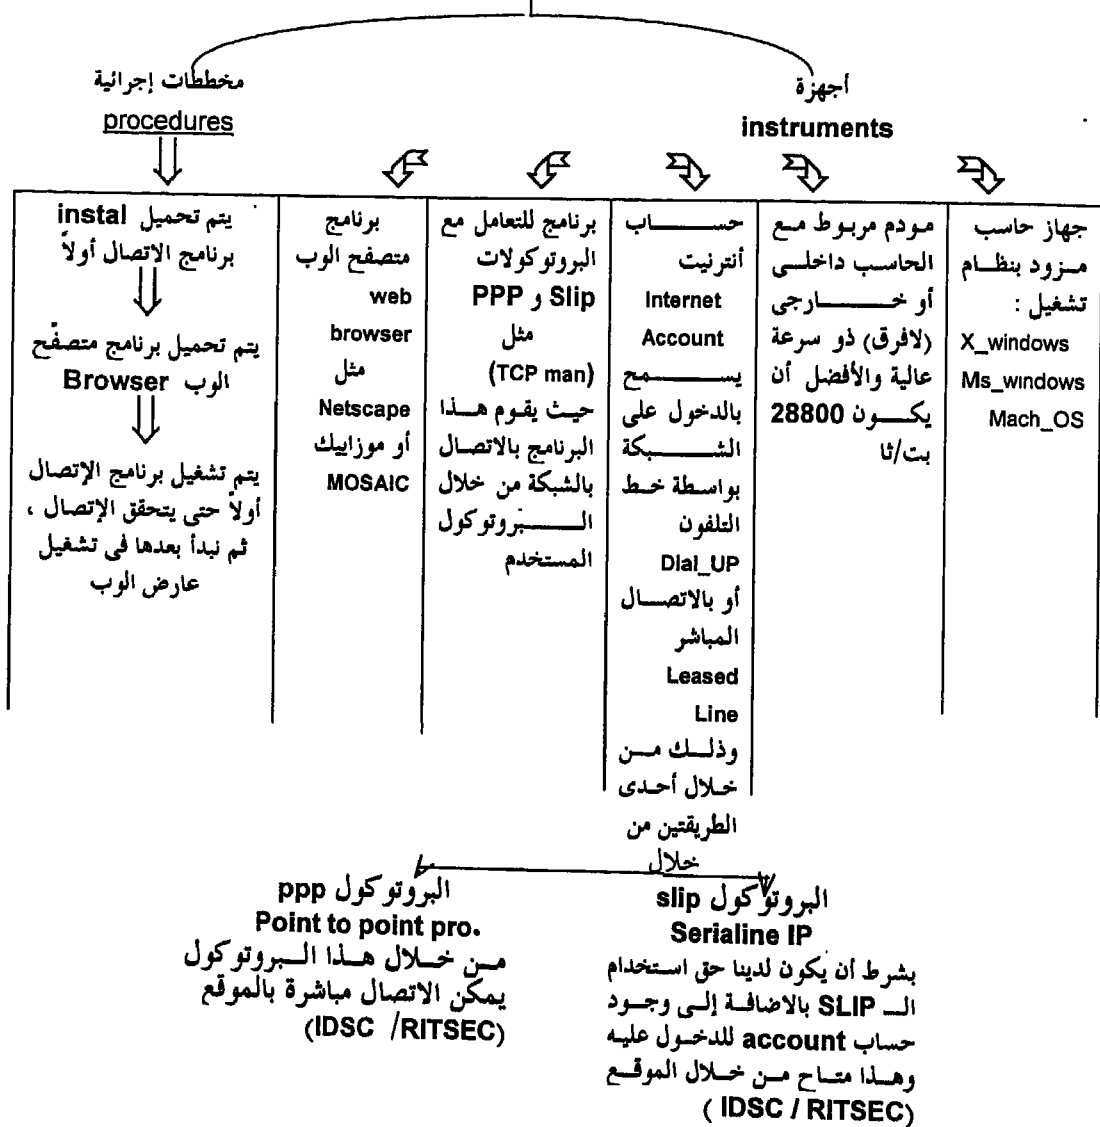 أجهزة
instruments
مخططات إجرائية
procedures
جهاز حاسب
مزود بنظام
تشغيل :
X_windows
Ms_windows
Mach_OS
مودم مربوط مع
الحاسب داخلى
أو خارجى
(لافرق) ذو سرعة
عالية والأفضل أن
يكون 28800
بت/ثا
حساب
أنترنيت
Internet
Account
يسمح
بالدخول على
الشبكة
بواسطة خط
التلفون
Dial_UP
أو بالاتصال
المباشر
Leased
Line
وذلك من
خلال أحدى
الطريقتين من
خلال
برنامج للتعامل مع
البروتوكولات
Slip و PPP
مثل
(TCP man)
حيث يقوم هذا
البرنامج بالاتصال
بالشبكة من خلال
البروتوكول
المستخدم
برنامج
متصفح الوب
web
browser
مثل
Netscape
أو موزاييك
MOSAIC
يتم تحميل instal
برنامج الاتصال أولاً
يتم تحميل برنامج متصفّح
الوب Browser
يتم تشغيل برنامج الإتصال
أولاً حتى يتحقق الإتصال ،
ثم نبدأ بعدها فى تشغيل
عارض الوب
البروتوكول slip
Serialine IP
بشرط أن يكون لدينا حق استخدام
الـ SLIP بالاضافة إلى وجود
حساب account للدخول عليه
وهذا متاح من خلال الموقع
(IDSC / RITSEC )
البروتوكول ppp
Point to point pro.
من خلال هذا البروتوكول
يمكن الاتصال مباشرة بالموقع
(IDSC /RITSEC)